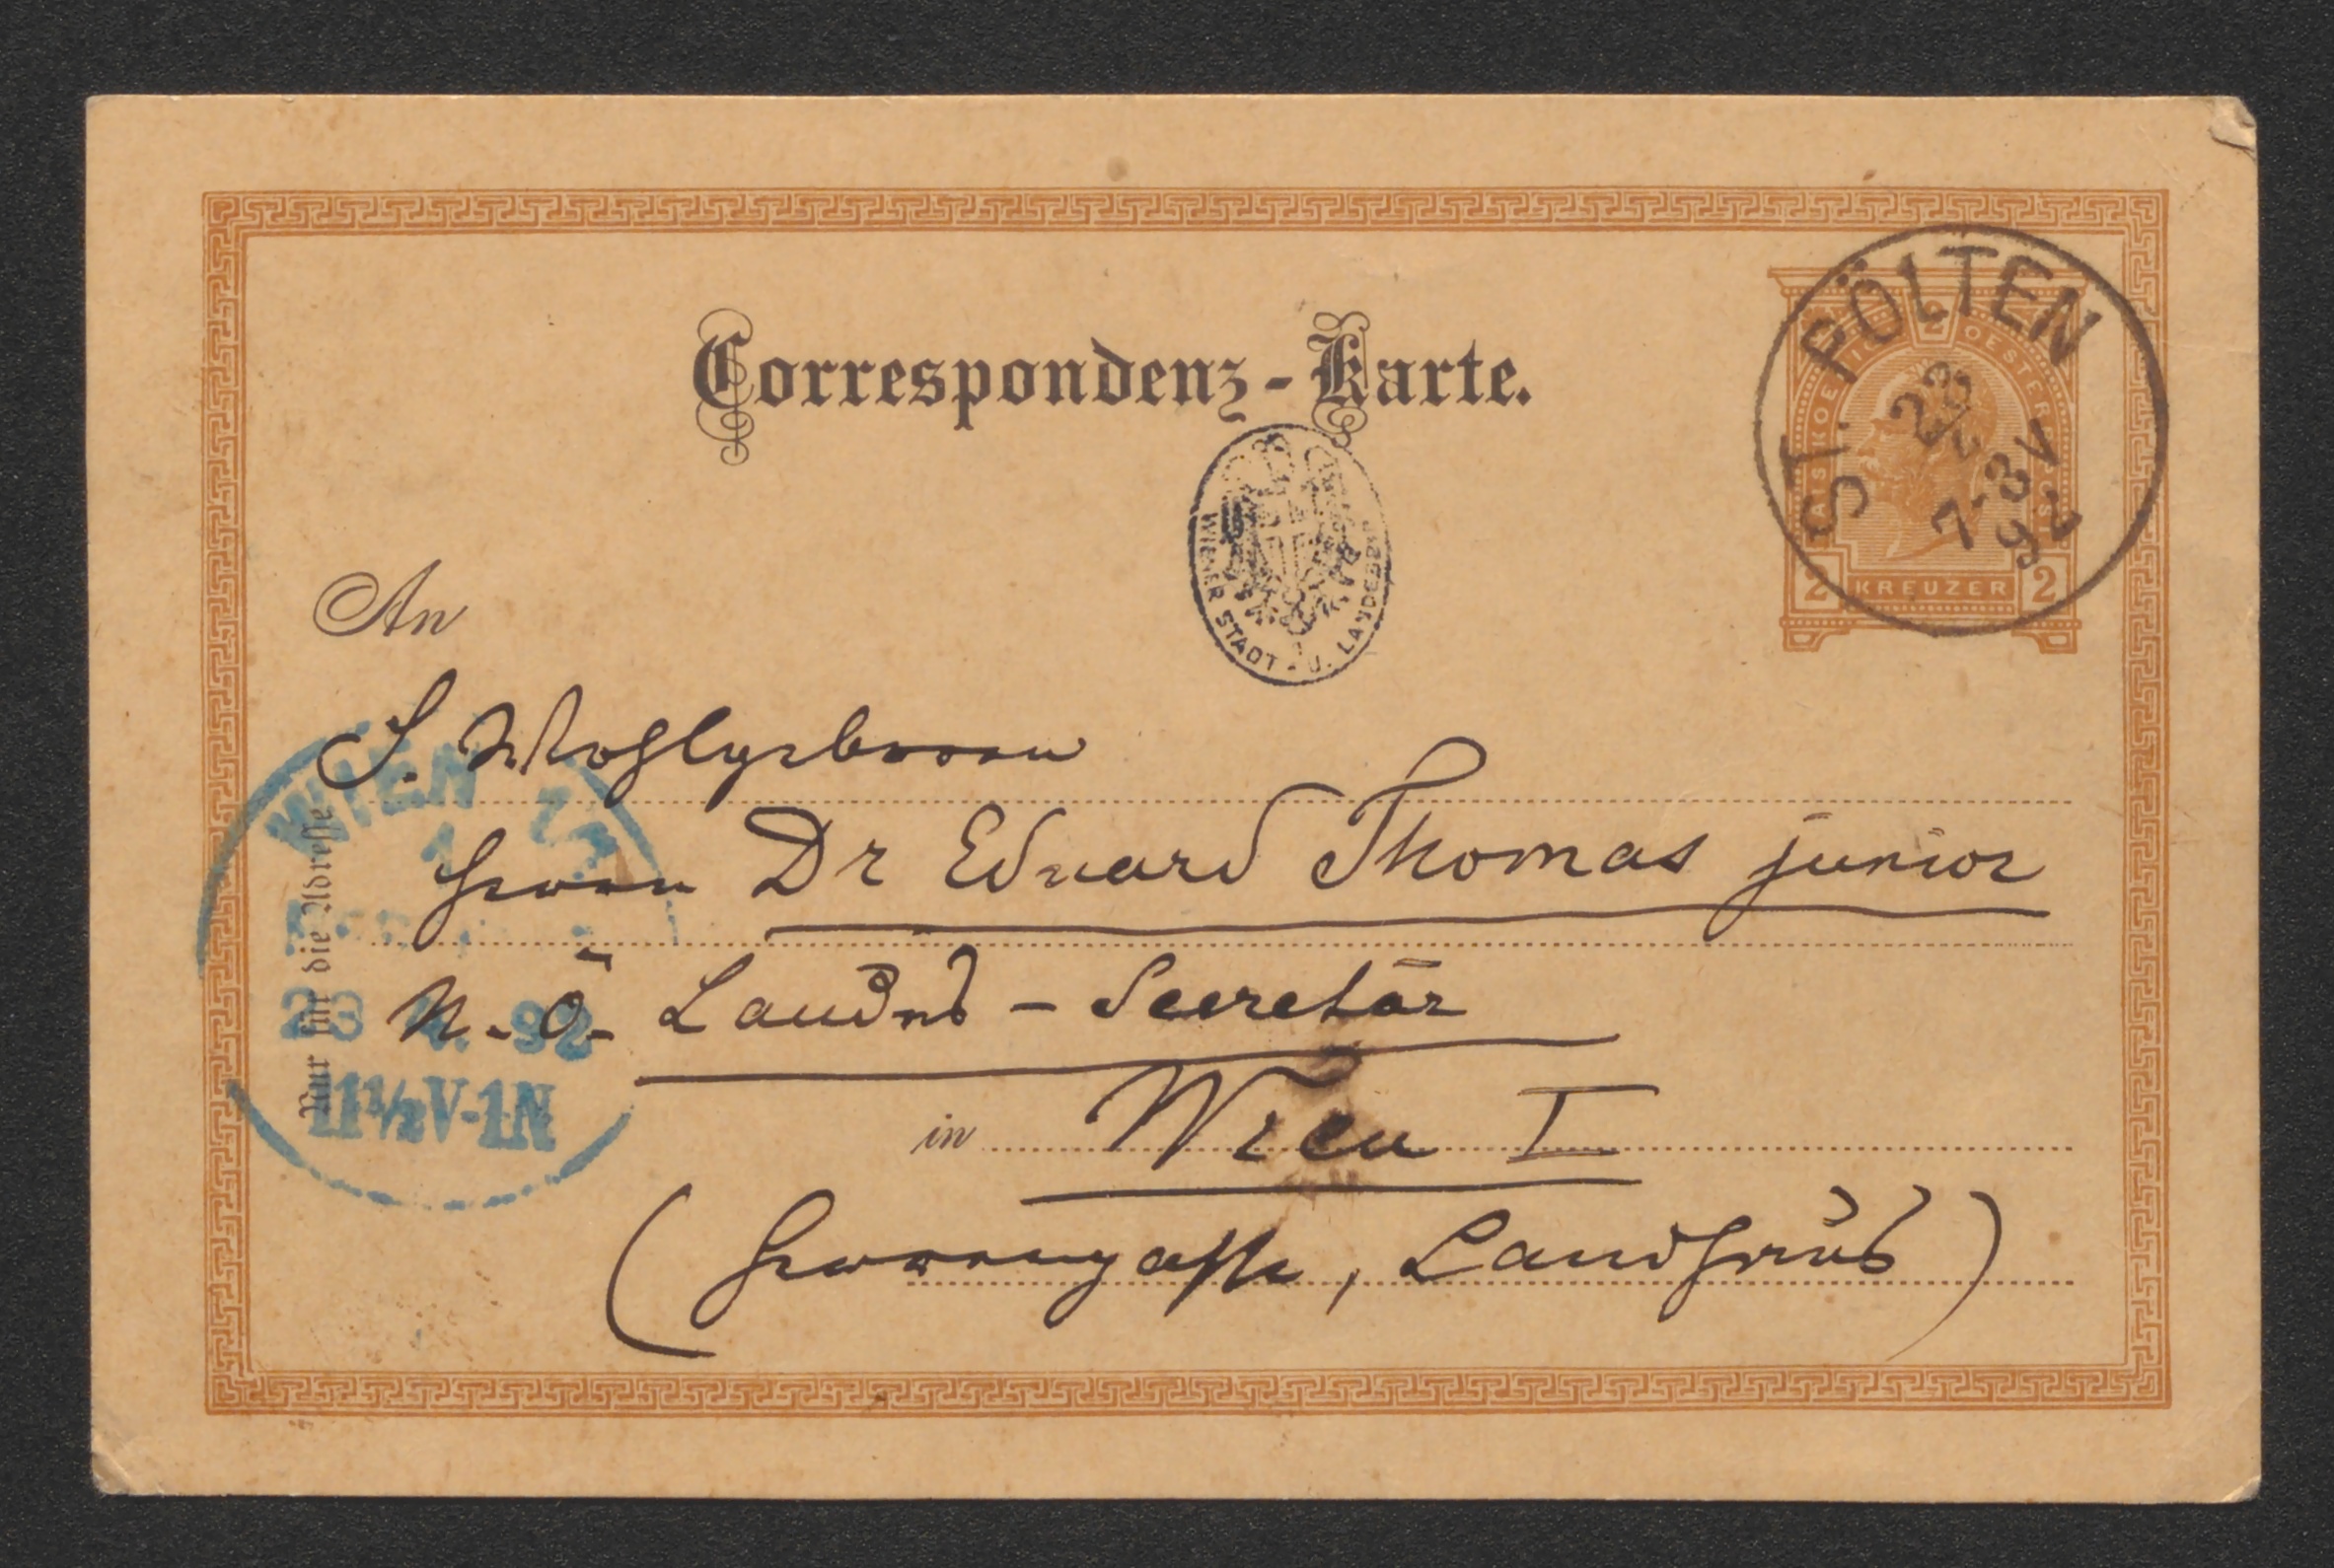 Correspondenz-Karte.
ST. PÖLTEN
23
4
7-8V
92
2
OESTERR
2 KREUZER 2
WIENER STADT- U. LANDESBI
An
S. Wohlgeboren
Herrn Dr Eduard Thomas junior
N.-Ö. Landes-Secretär
in Wien I
(Herrengasse, Landhaus)
Nur für die Adresse
WIEN
1
23 4. 92
11½V-1N